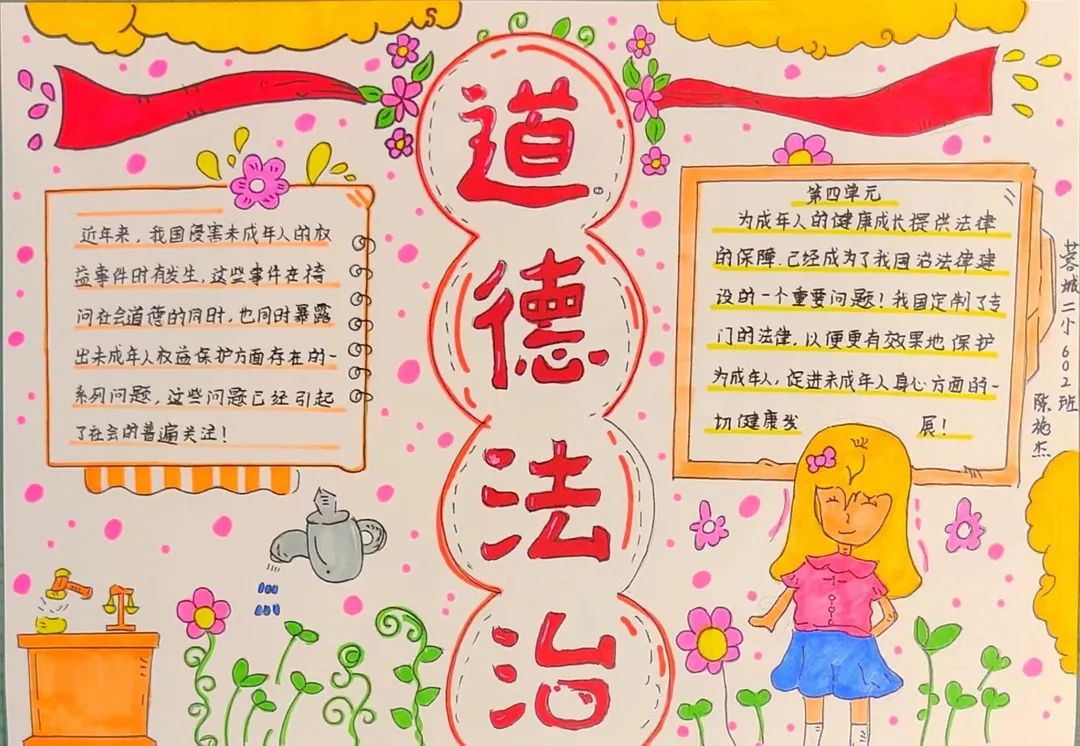 道
德
法
治
近年来，我国侵害未成年人的权
益事件时有发生，这些事件在待
问在会道德的同时，也同时暴露
出未成年人权益保护方面存在的一
系列问题，这些问题已经引起
了社会的普遍关注！
第四单元
为成年人的健康成长提供法律
的保障．已经成为了我国治法律建
设的一个重要问题！我国定制了专
门的法律，以便更有效果地保护
为成年人，促进未成年人身心方面的一
切健康发展！
蓉城二小602班
陈施杰